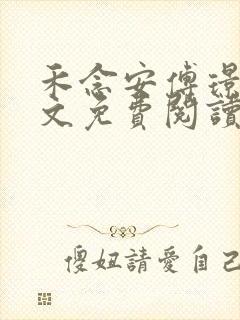 禾念安傅璟
文免費閱讀
傻妞請愛自己